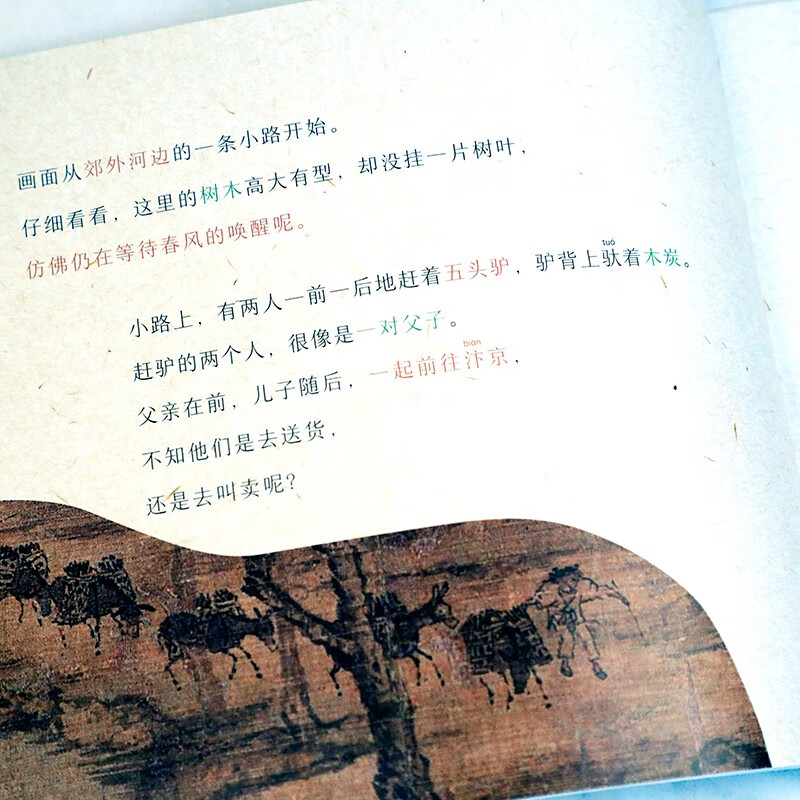 画面从郊外河边的一条小路开始。
仔细看看，这里的树木高大有型，却没挂一片树叶，
仿佛仍在等待春风的唤醒呢。
tuó
小路上，有两人一前一后地赶着五头驴，驴背上驮着木炭。
赶驴的两个人，很像是一对父子。
biàn
父亲在前，儿子随后，一起前往汴京，
不知他们是去送货，
还是去叫卖呢？